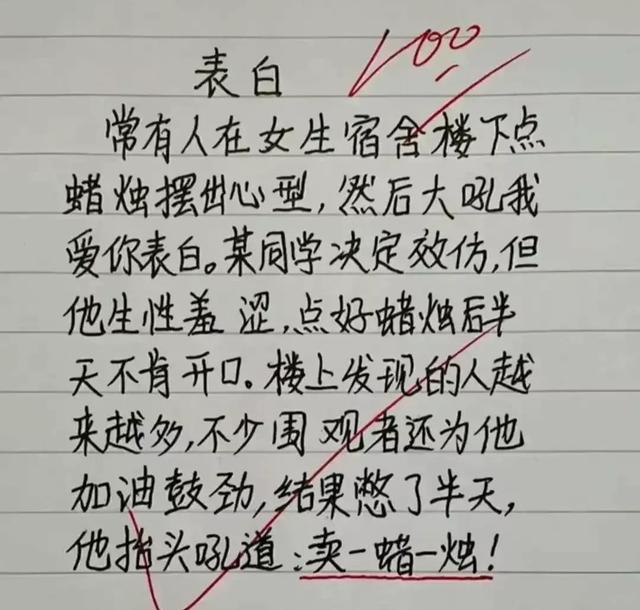 100
表白
常有人在女生宿舍楼下点
蜡烛摆出心型,然后大吼我
爱你表白。某同学决定效仿,但
他生性羞涩,点好蜡烛后半
天不肯开口。楼上发现的人越
来越多,不少围观者还为他
加油鼓劲,结果憋了半天,
他抬头吼道:卖一蜡一烛!